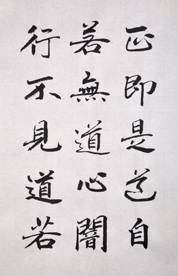 正即是道自
若無道心闇
行不見道若